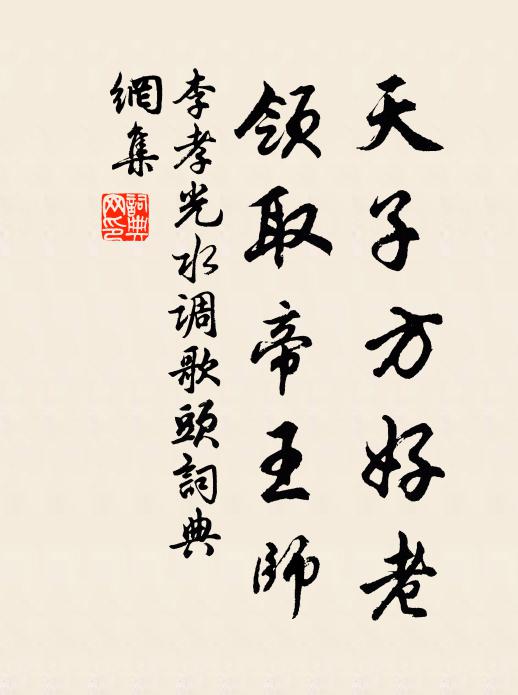 天子方好老
領取帝王師
李孝光水调歌頭詞典
網集
詞典
网印